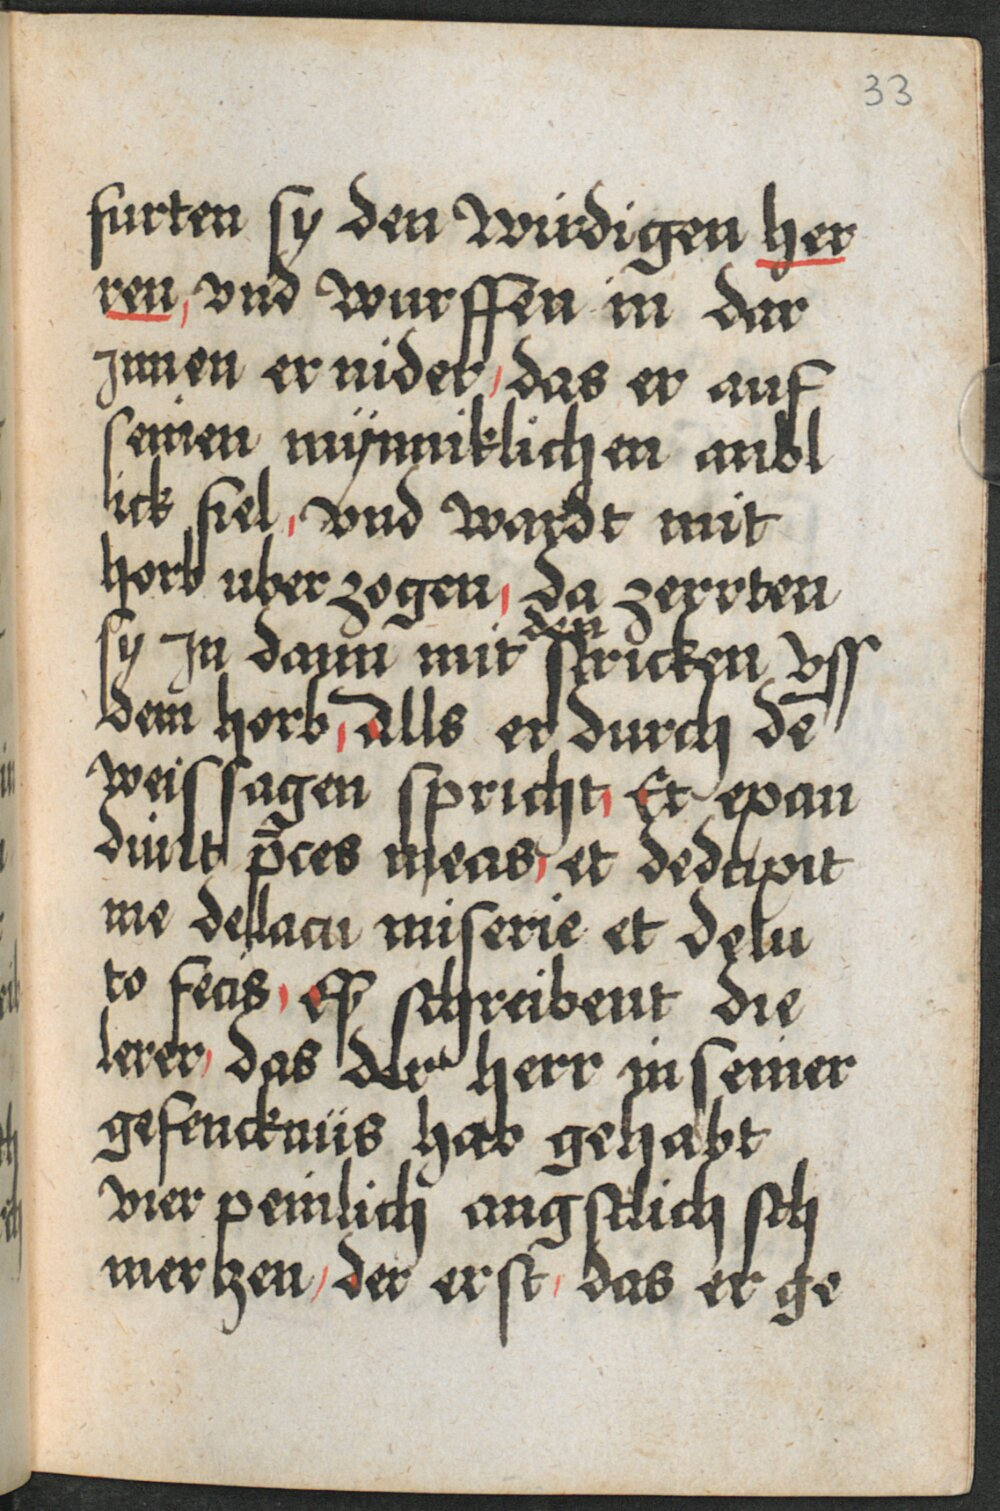 33
furten sy den würdigen her
ren, vnd wurffen in dar
Jnnen er nider, das er auf
seinen mÿnniklichen anbl
lick fiel, vnd wardt mit
horb uber zogen, da zerrten
sy Jn dann mit den stricken vss
dem horb, Alls er durch dē
weissagen spricht, Et exau
diuit p̄ces meas, et deduxit
me dellacu miserie et delu
to fecis, Eſʒ schreibent die
lerer, das der herr in seiner
gefencknüs hab gehabt
vier peinlich angstlich sch
mertzen, der erst, das er ge